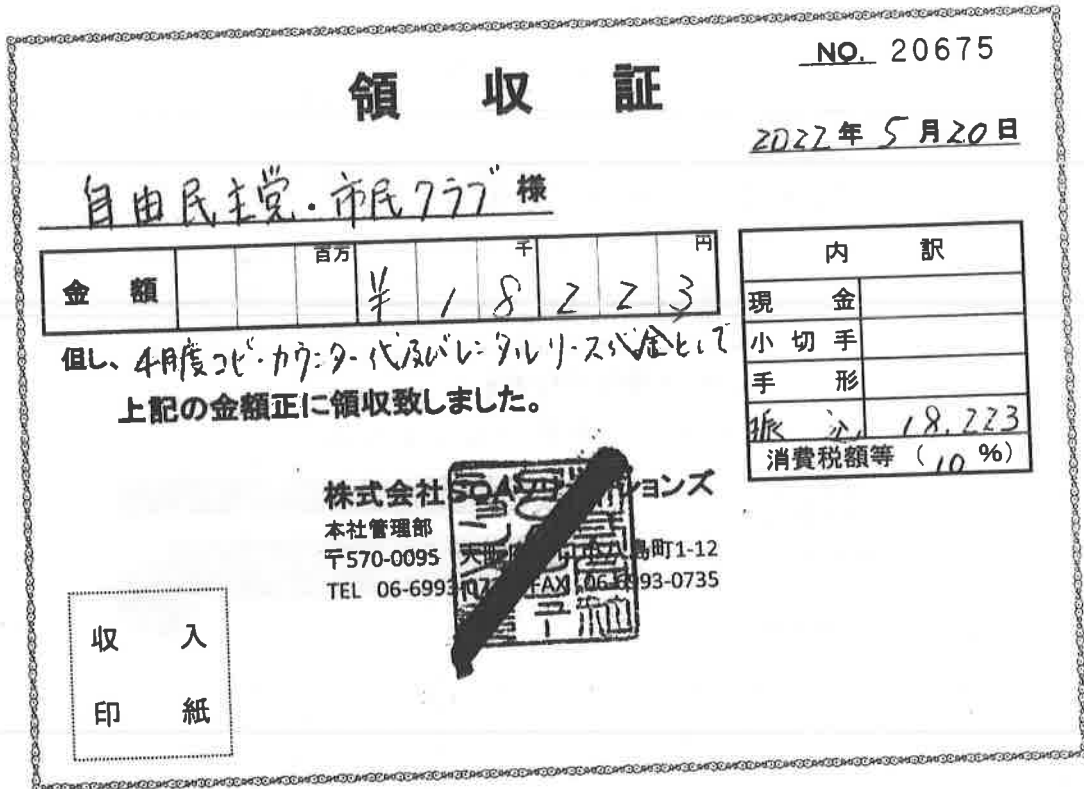 NO. 20675
領収証
2022年5月20日
自由民主党・市民クラブ様
金額 百万 千 円
¥18223
但し、4月度コピ・カウンター代及びレンタルリース代金として
上記の金額正に領収致しました。
内訳
現金
小切手
手形
振込 18,223
消費税額等(10%)
株式会社SOA ションズ
本社管理部
〒570-0095 大 八島町1-12
TEL 06-6993-07 FAX 06-6993-0735
収入
印紙